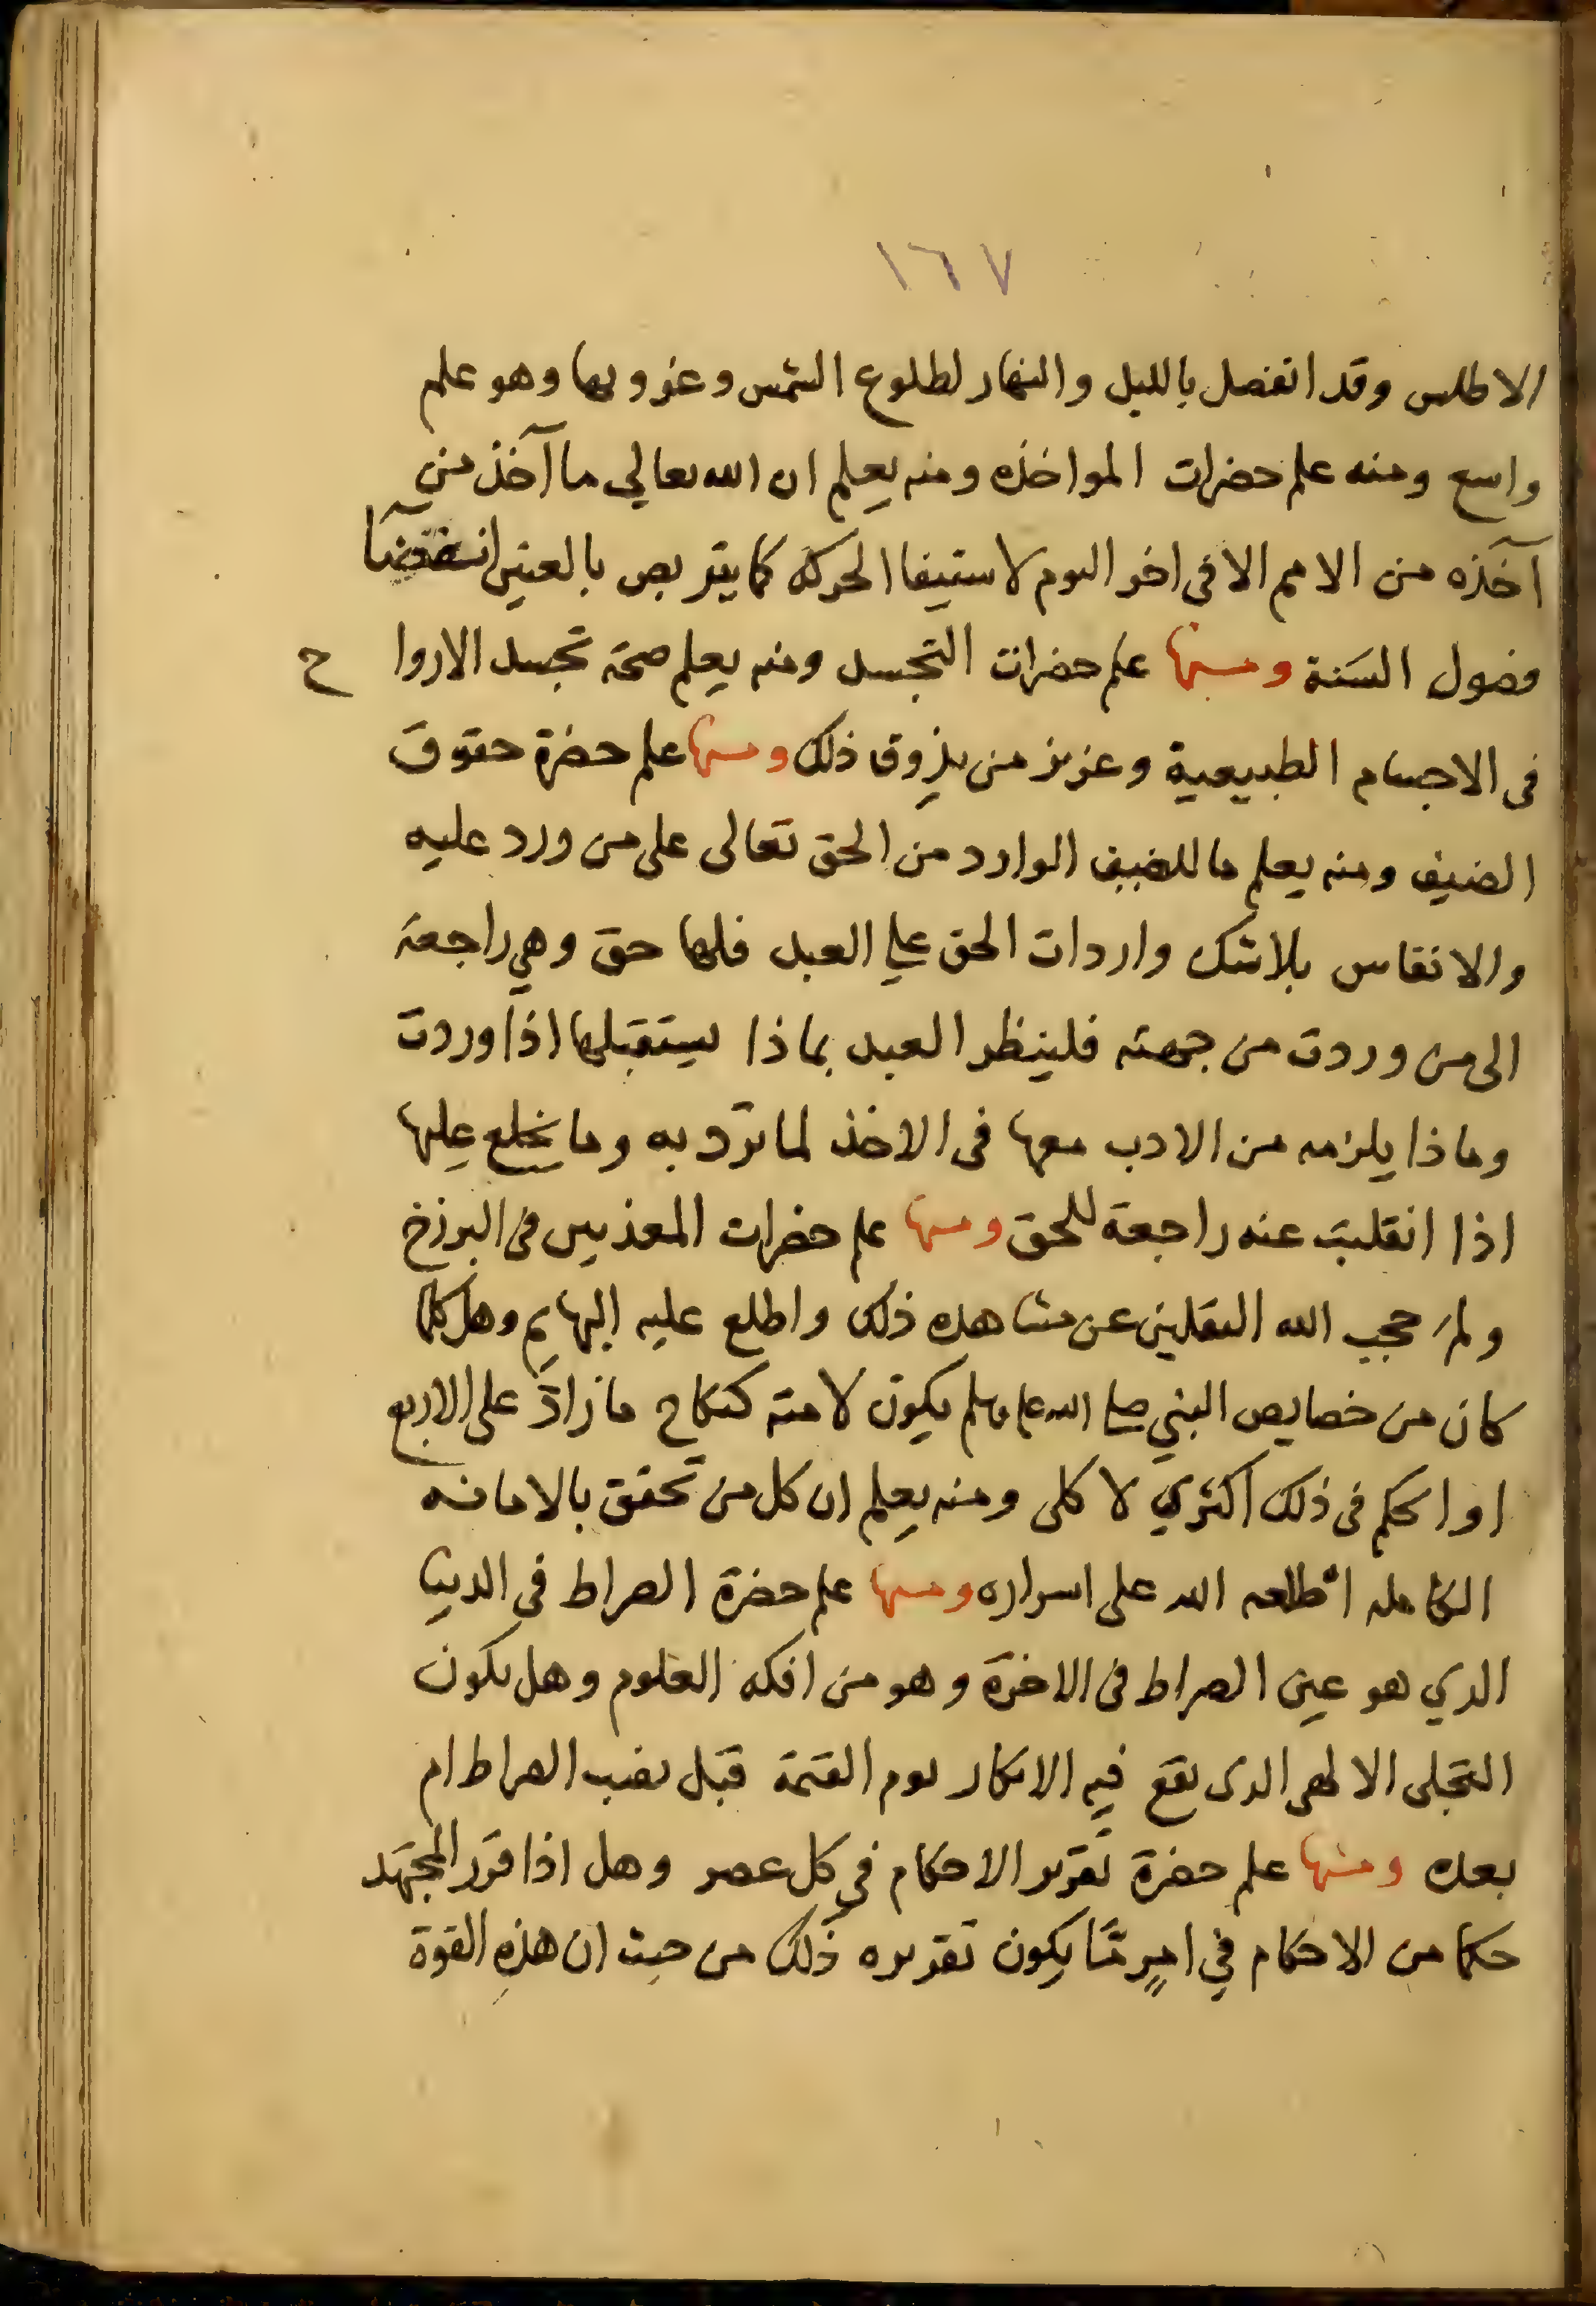 ١٦٧
الاطلس وقد انفصل بالليل والنهار لطلوع الشمس وغروبها وهو علم
واسع ومنه علم حضرات المواخذه ومنه يعلم ان الله تعالي ما آخذ من
آخذه من الامم الا في اخر اليوم لاستيفا الحركة كما يتربص بالعنين انقضآ
فصول السَنة ومنها علم حضرات التجسد ومنه يعلم صحة تجسد الاروا ح
في الاجسام الطبيعية وعزيز من يذوق ذلك ومنها علم حضرة حقوق
الضيف ومنه يعلم ما للضيف الوارد من الحق تعالى على من ورد عليه
والانفاس بلا شك واردات الحق علي العبد فلها حق وهي راجعة
الى من وردت من جهته فلينظر العبد بماذا يستقبلها اذا وردت
وماذا يلزمه من الادب معها في الاخذ لما ترد به وما يخلع عليها
اذا انقلبت عنه راجعة للحق ومنها علم حضرات المعذبين في البرزخ
ولم حجب الله الثقلين عن مشاهده ذلك واطلع عليه البهايم وهل كلما
كان من خصايص النبي صلى الله عليه وسلم يكون لامته كنكاح ما زاد على الاربع
او الحكم في ذلك اكثري لا كلى ومنه يعلم ان كل من تحقق بالامانه
الكامله اطلعه الله على اسراره ومنها علم حضرة الصراط في الدنيا
الذي هو عين الصراط في الاخرة وهو من افكه العلوم وهل يكون
التجلى الالهى الذى يقع فيه الانكار يوم القيمة قبل نصب الصراط ام
بعده ومنها علم حضرة تقرير الاحكام في كل عصر وهل اذا قرر المجتهد
حكما من الاحكام في امرٍ مّا يكون تقريره ذلك من حيث ان هذهِ القوة